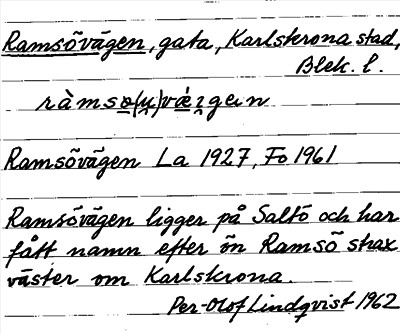 Ramsövägen, gata, Karlskrona stad,
Blek. l.
ràmsø(u̯)vǽgən
Ramsövägen La 1927, Fo 1961
Ramsövägen ligger på Saltö och har
fått namn efter ön Ramsö strax
väster om Karlskrona.
Per-Olof Lindqvist 1962